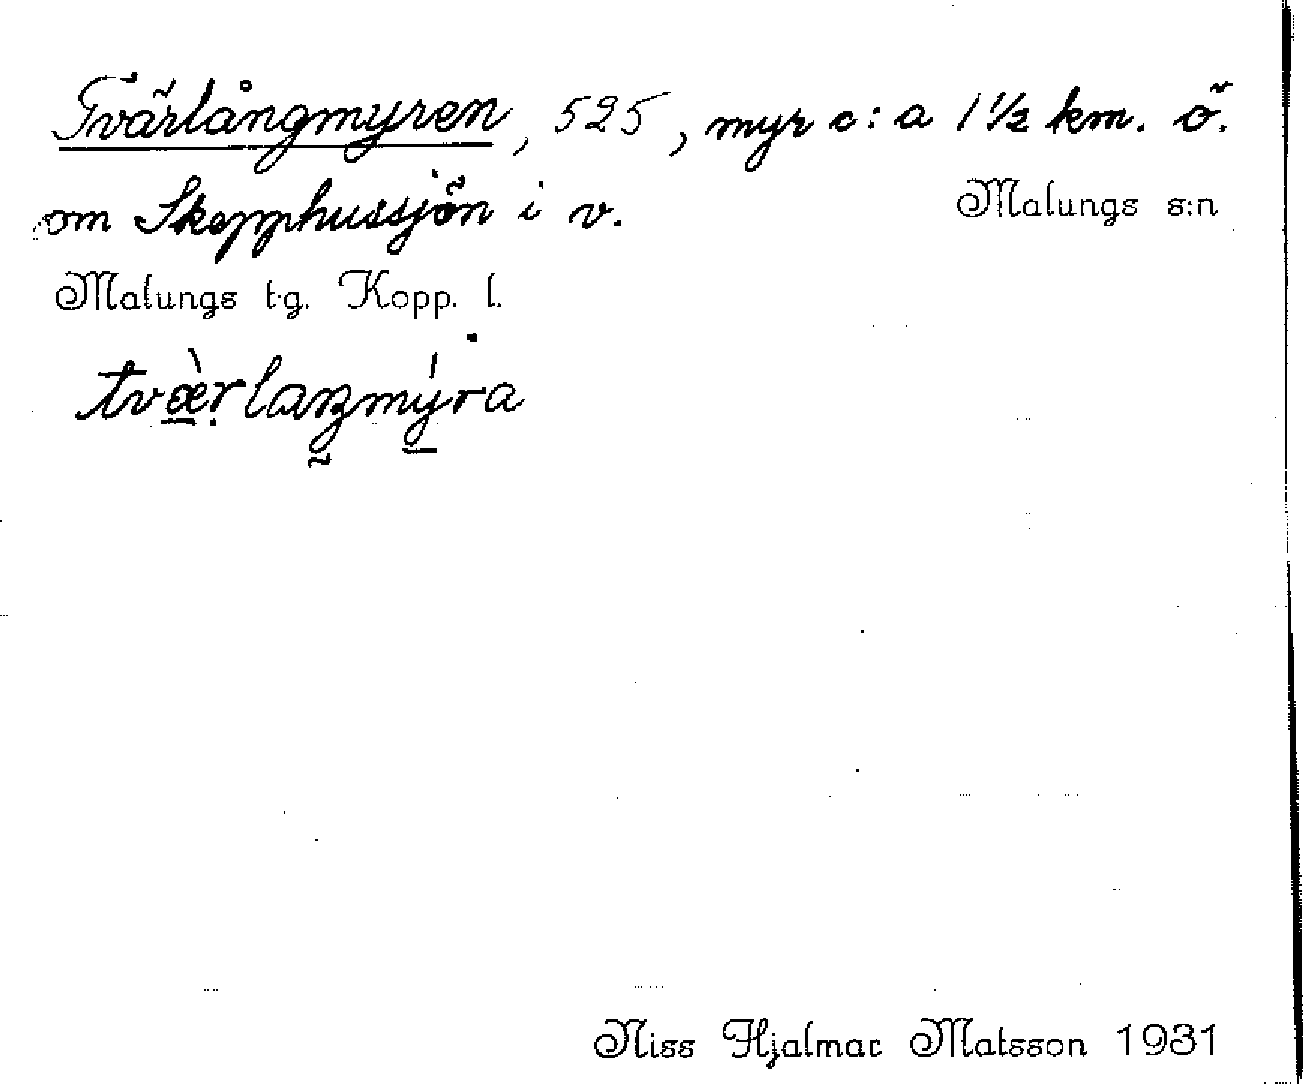 Tvärlångmyren, 525, myr c:a 1½ km. ö.
om Skepphussjön i v. Malungs s:n
Malungs t.g. Kopp. l.
tvæ̀r̤laŋmýra
Niss Hjalmar Matsson 1931